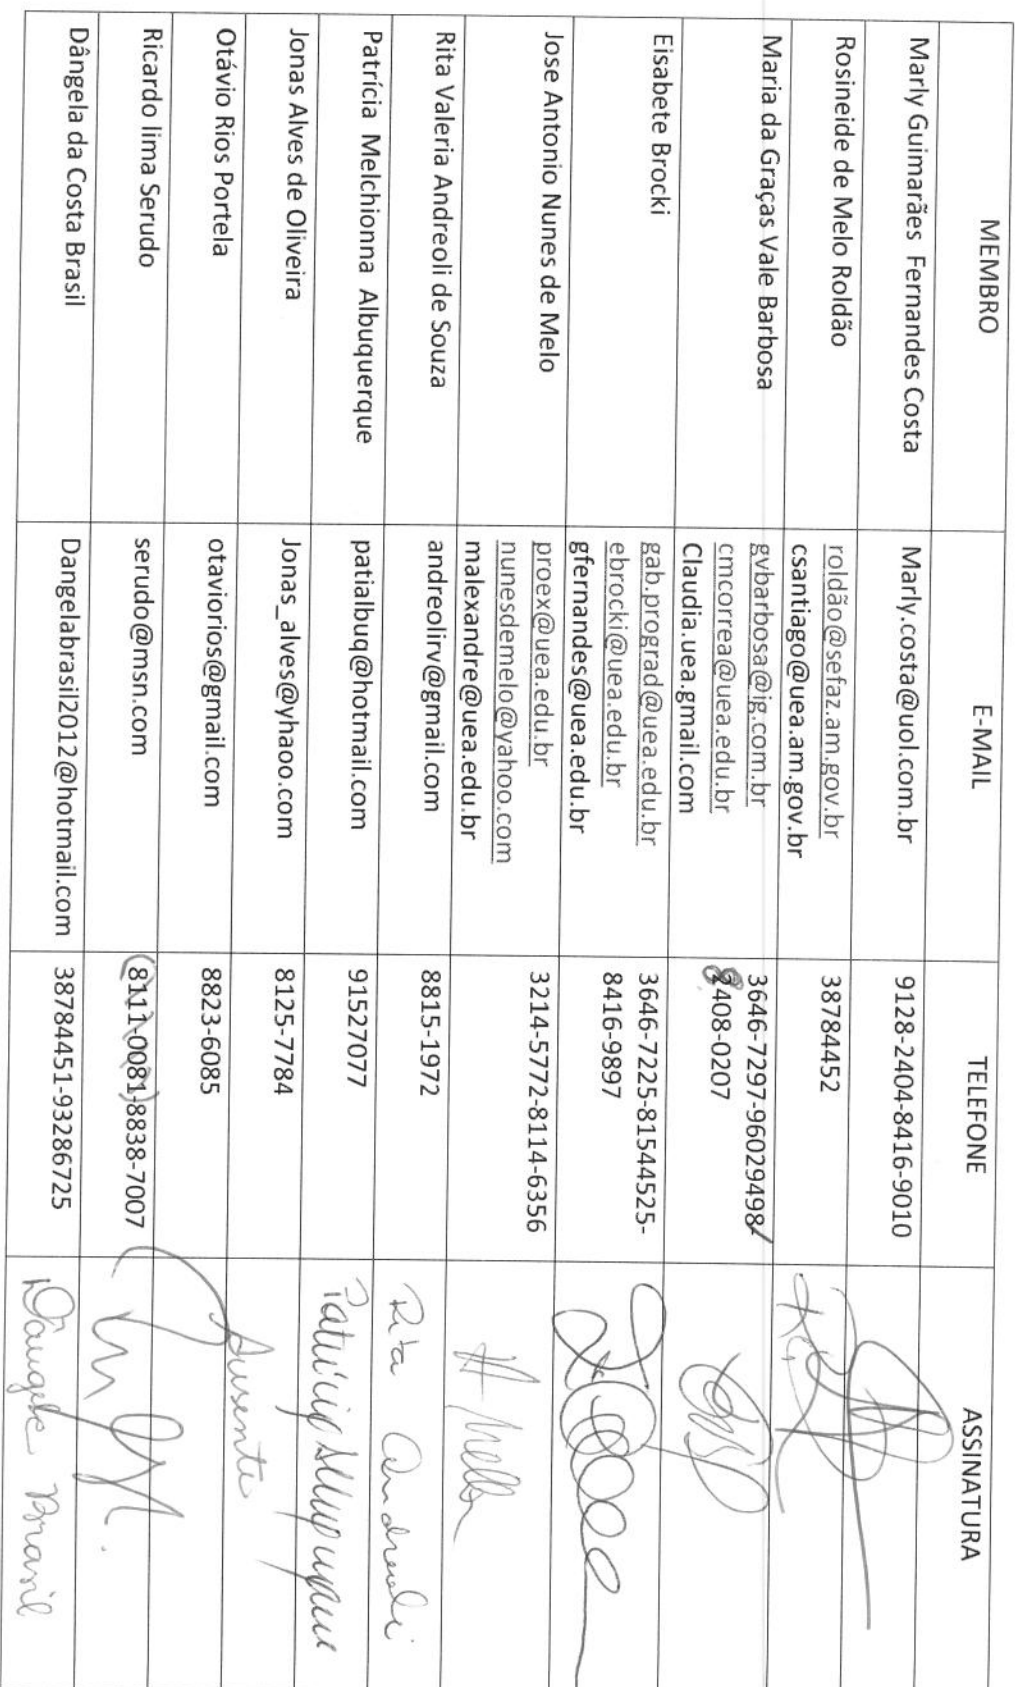 MEMBRO E-MAIL TELEFONE ASSINATURA
Marly Guimarães Fernandes Costa Marly.costa@uol.com.br 9128-2404-8416-9010
Rosineide de Melo Roldão roldão@sefaz.am.gov.br 38784452
csantiago@uea.am.gov.br
Maria da Graças Vale Barbosa gvbarbosa@ig.com.br 3646-7297-96029498/
cmcorrea@uea.edu.br 8408-0207
Claudia.uea.gmail.com
Eisabete Brocki gab.prograd@uea.edu.br 3646-7225-81544525-
ebrocki@uea.edu.br 8416-9897
gfernandes@uea.edu.br
Jose Antonio Nunes de Melo proex@uea.edu.br 3214-5772-8114-6356
nunesdemelo@yahoo.com
malexandre@uea.edu.br
Rita Valeria Andreoli de Souza andreolirv@gmail.com 8815-1972 Rita Andreoli
Patrícia Melchionna Albuquerque patialbuq@hotmail.com 91527077 Patrícia
Jonas Alves de Oliveira Jonas_alves@yhaoo.com 8125-7784 Ausente
Otávio Rios Portela otaviorios@gmail.com 8823-6085
Ricardo lima Serudo serudo@msn.com (8111-0081-)8838-7007
Dângela da Costa Brasil Dangelabrasil2012@hotmail.com 38784451-93286725 Dângela Brasil